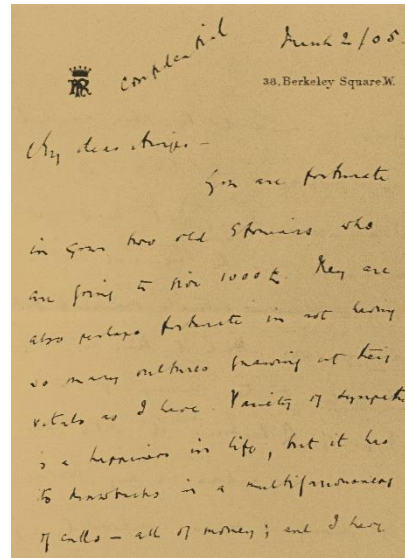 Confidential
March 2/05.
38, Berkeley Square. W.
My dear
You are fortunate
in your two old who
are going to give 1000£. They are
also perhaps fortunate in not having
so many vultures gnawing at their
vitals as I have. Variety of sympathy
is a happiness in life, but it has
its drawbacks in a multifariousness
of calls – all of money; and I have